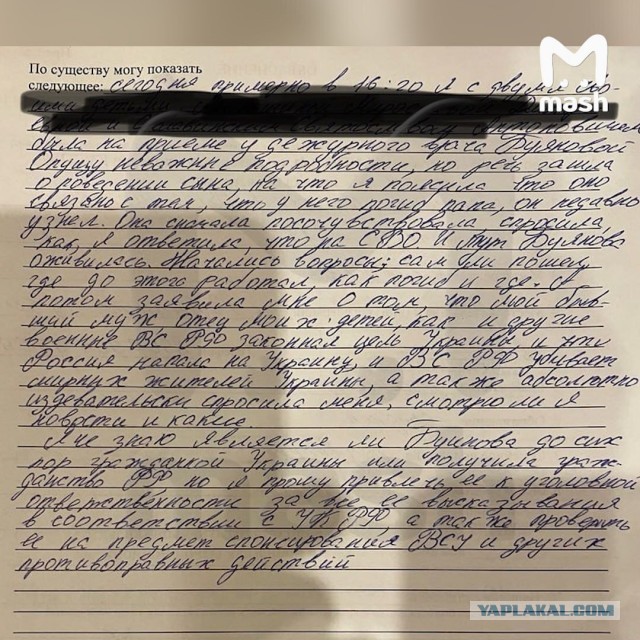 По существу могу показать
следующее: сегодня примерно в 16:20 я с двумя
mash
была на приеме у дежурного врача Буяновой
Опущу неважные подробности, но речь зашла
о поведении сына, на что я пояснила что оно
связано с тем, что у него погиб папа, он недавно
узнел. Она сначала посочувствовала спросила,
как, я ответила, что на СВО И тут Буянова
оживилась. Начались вопросы: сам ли пошел,
где до этого работал, как погиб и где. И
потом заявила мне о том, что мой быв-
ший муж, отец моих детей, как и другие
военные ВС РФ законная цель Украины и что
Россия напала на Украину, и ВС РФ убивает
мирных жителей Украины, а также абсолютно
издевательски спросила меня, смотрю ли я
новости и какие.
Я не знаю является ли Буянова до сих
пор гражданкой Украины или получила граж-
данство РФ но я прошу привлечь ее к уголовной
ответственности за все ее высказывания
в соответствии с УК РФ а также проверить
ее на предмет спонсирования ВСУ и других
противоправных действий
YAPLAKAL.COM